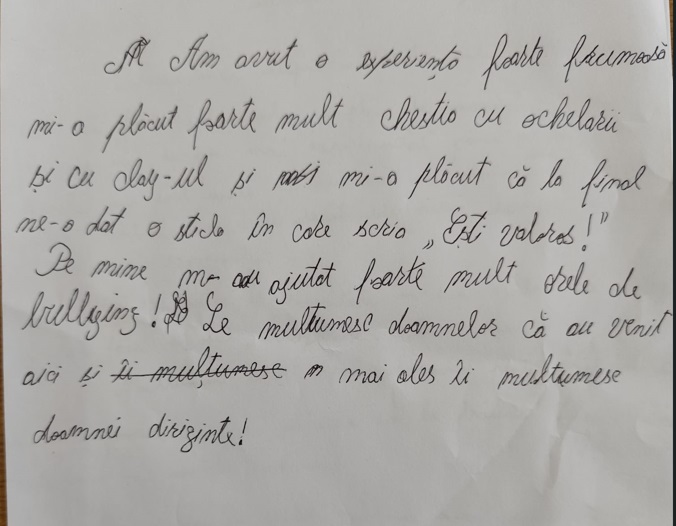 Am avut o experiență foarte frumoasă
mi-a plăcut foarte mult chestia cu ochelarii
și cu clay-ul și mi-a plăcut că la final
ne-a dat o sticlă în care scria „Ești valoros!”
Pe mine m-au ajutat foarte mult orele de
bullying! Le multumesc doamnelor că au venit
aici și îi mulțumesc mai ales îi mulțumesc
doamnei diriginte!